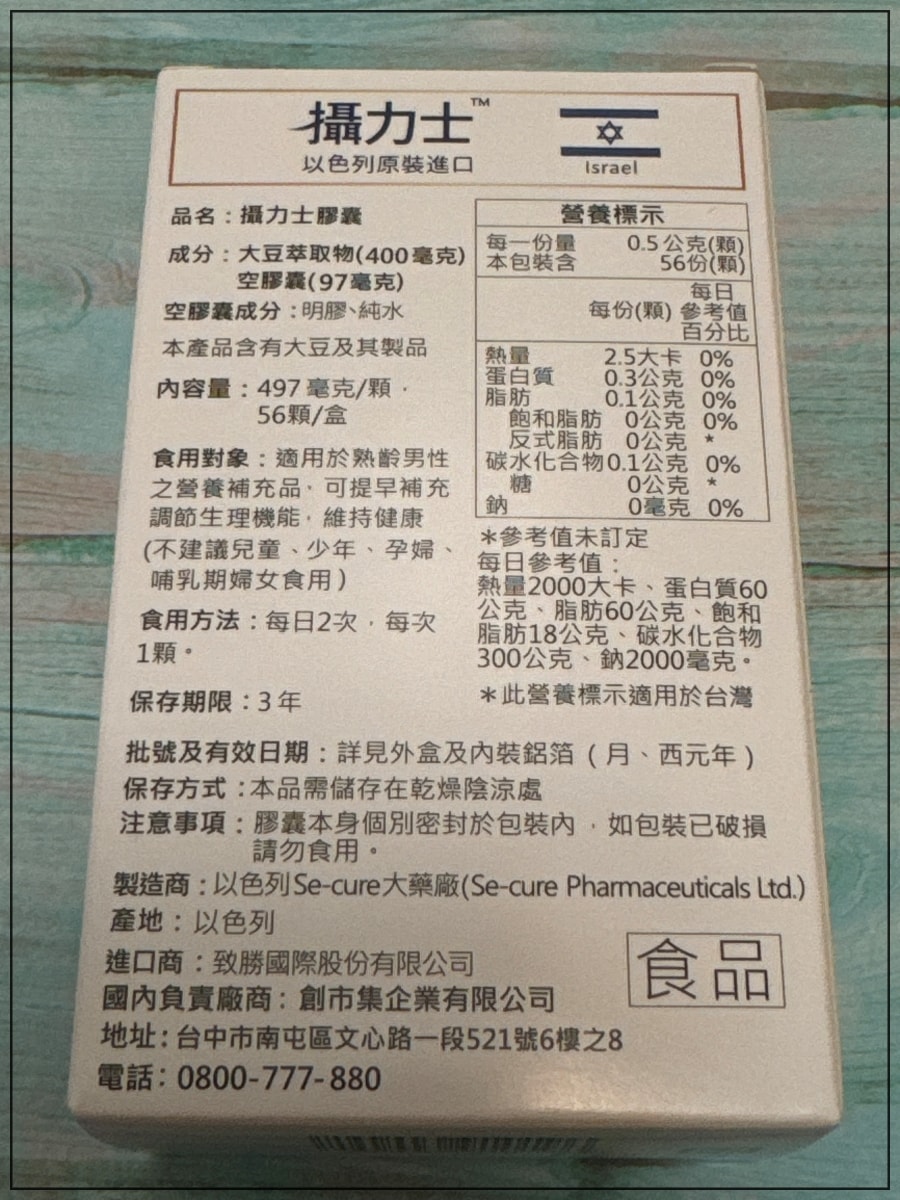 攝力士™
以色列原裝進口
Israel
品名：攝力士膠囊
成分：大豆萃取物(400毫克)
空膠囊(97毫克)
空膠囊成分：明膠、純水
本產品含有大豆及其製品
內容量：497毫克/顆，
56顆/盒
食用對象：適用於熟齡男性
之營養補充品，可提早補充
調節生理機能，維持健康
(不建議兒童、少年、孕婦、
哺乳期婦女食用)
食用方法：每日2次，每次
1顆。
保存期限：3年
營養標示
每一份量 0.5公克(顆)
本包裝含 56份(顆)
每日
每份(顆) 參考值
百分比
熱量 2.5大卡 0%
蛋白質 0.3公克 0%
脂肪 0.1公克 0%
飽和脂肪 0公克 0%
反式脂肪 0公克 *
碳水化合物0.1公克 0%
糖 0公克 *
鈉 0毫克 0%
＊參考值未訂定
每日參考值：
熱量2000大卡、蛋白質60
公克、脂肪60公克、飽和
脂肪18公克、碳水化合物
300公克、鈉2000毫克。
＊此營養標示適用於台灣
批號及有效日期：詳見外盒及內裝鋁箔（月、西元年）
保存方式：本品需儲存在乾燥陰涼處
注意事項：膠囊本身個別密封於包裝內，如包裝已破損
請勿食用。
製造商：以色列Se-cure大藥廠(Se-cure Pharmaceuticals Ltd.)
產地：以色列
進口商：致勝國際股份有限公司
國內負責廠商：創市集企業有限公司
地址：台中市南屯區文心路一段521號6樓之8
電話：0800-777-880
食品